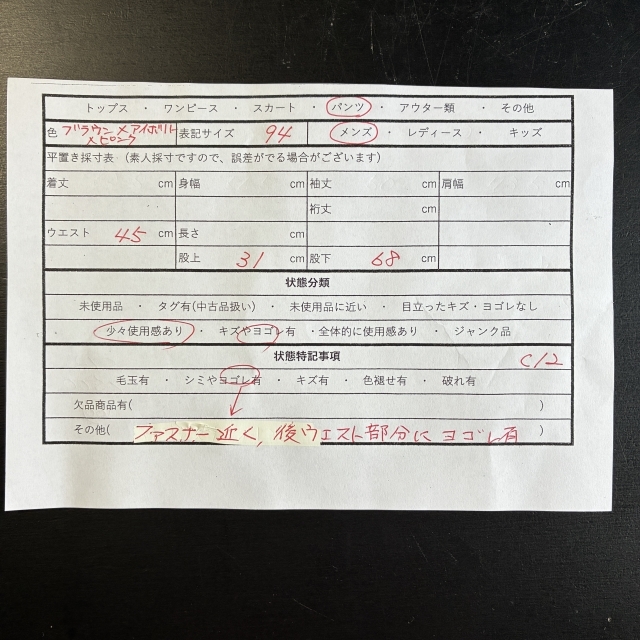 トップス ・ ワンピース ・ スカート ・ パンツ ・ アウター類 ・ その他
色 ブラウン×アイボリー×ピンク 表記サイズ 94 メンズ ・ レディース ・ キッズ
平置き採寸表 (素人採寸ですので、誤差がでる場合がございます)
着丈 cm 身幅 cm 袖丈 cm 肩幅 cm
裄丈 cm
ウエスト 45 cm 長さ cm
股上 31 cm 股下 68 cm
状態分類
未使用品 ・ タグ有(中古品扱い) ・ 未使用品に近い ・ 目立ったキズ・ヨゴレなし
少々使用感あり ・ キズやヨゴレ有 ・全体的に使用感あり ・ ジャンク品
状態特記事項 C12
毛玉有 ・ シミやヨゴレ有 ・ キズ有 ・ 色褪せ有 ・ 破れ有
欠品商品有( )
その他( ファスナー近く,後ウエスト部分にヨゴレ有 )